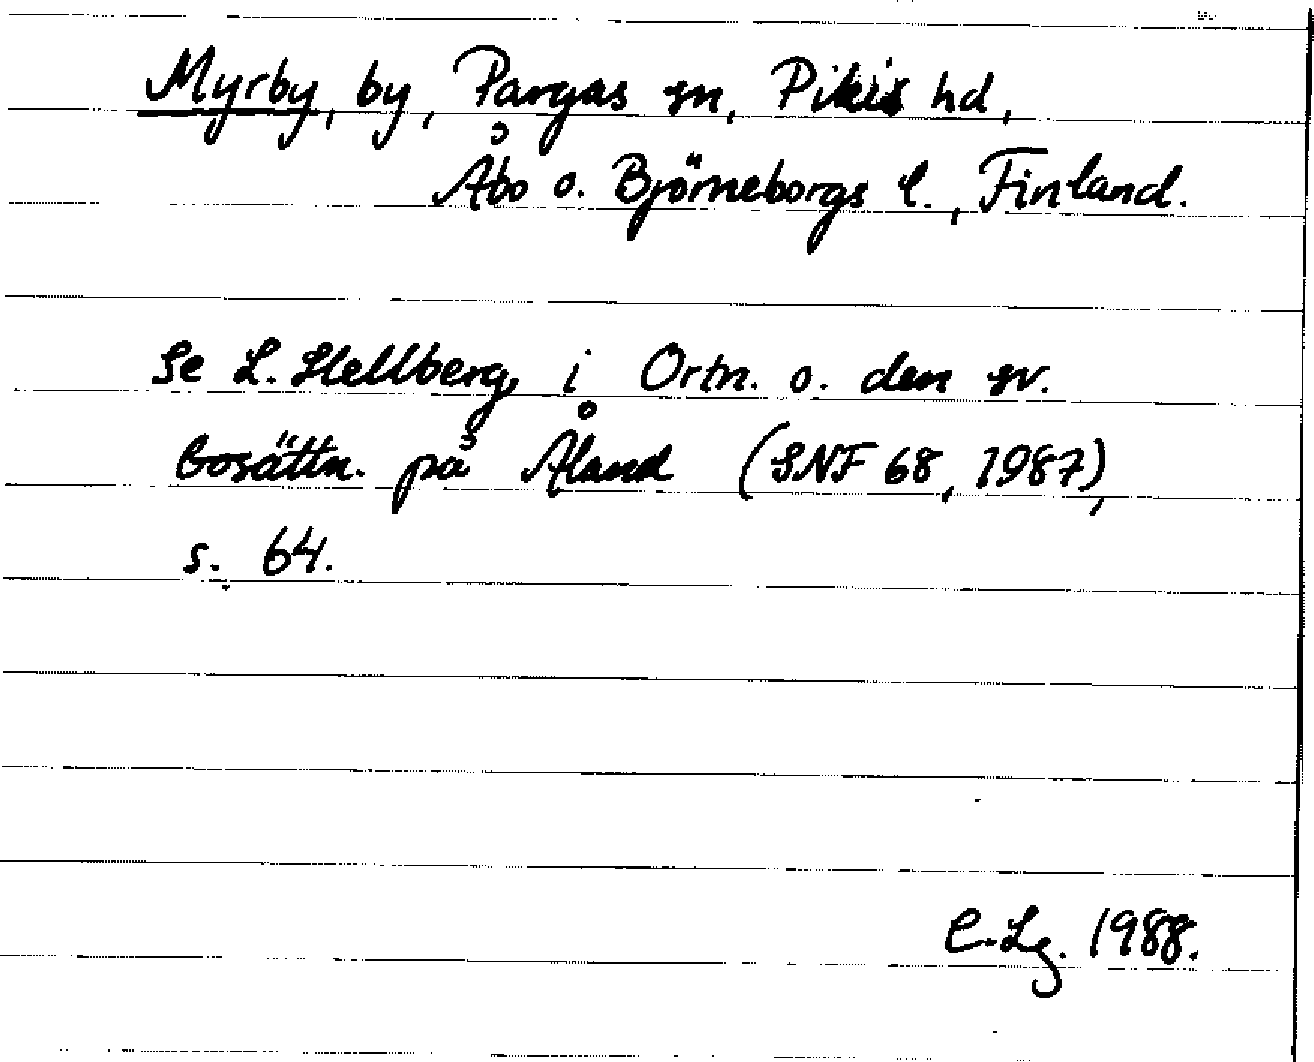 Myrby, by, Pargas sn, Pikis hd,
Åbo o. Björneborgs l., Finland.
Se L. Hellberg, i Ortn. o. den sv.
bosättn. på Åland (SNF 68, 1987),
s. 64.
C. Lg. 1988.